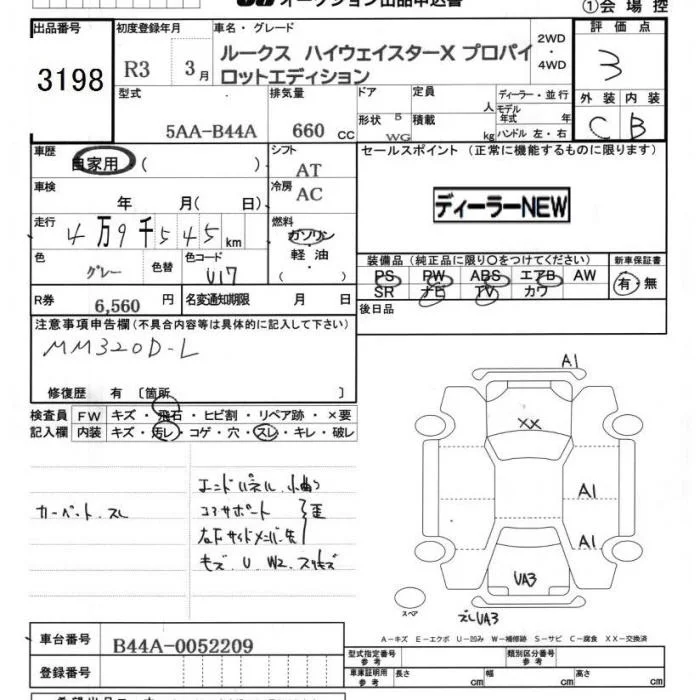 オークション出品申込書
①会場控
出品番号
3198
初度登録年月
R3 3月
車名・グレード
ルークス ハイウェイスターX プロパイ
ロットエディション
2WD
・
4WD
評価点
3
外装 内装
C B
型式
5AA-B44A
排気量
660 CC
ドア
形状 5
WG
定員 人
積載 kg
ディーラー・並行
モデル年式 年
ハンドル 左・右
車歴
自家用 ( )
シフト
AT
車検
年 月( 日)
冷房
AC
走行
4万9千545km
燃料
ガソリン
軽油
( )
色
グレー
色替
色コード
U17
R券
6,560 円
名変通知期限 月 日
セールスポイント (正常に機能するものに限ります)
ディーラーNEW
装備品(純正品に限り○をつけてください)
PS PW ABS エアB AW
SR ナビ TV カワ
新車保証書
有・無
後日品
注意事項申告欄(不具合内容等は具体的に記入して下さい)
MM320D-L
修復歴 有 〔箇所 〕
検査員
記入欄
FW キズ・飛石・ヒビ割・リペア跡・×要
内装 キズ・汚レ・コゲ・穴・スレ・キレ・破レ
カーペット スレ
エンドパネル 小曲り
コアサポート
右Fサイドメンバー先
歪
キズ. U. W2. スリキズ
A1
XX
A1
A1
UA3
スペア
ズレUA3
A-キズ E-エクボ U-凹み W-補修跡 S-サビ C-腐食 XX-交換済
車台番号
B44A-0052209
登録番号
型式指定番号
参考
類別区分番号
参考
車庫証明用
参考
長さ cm
幅 cm
高さ cm